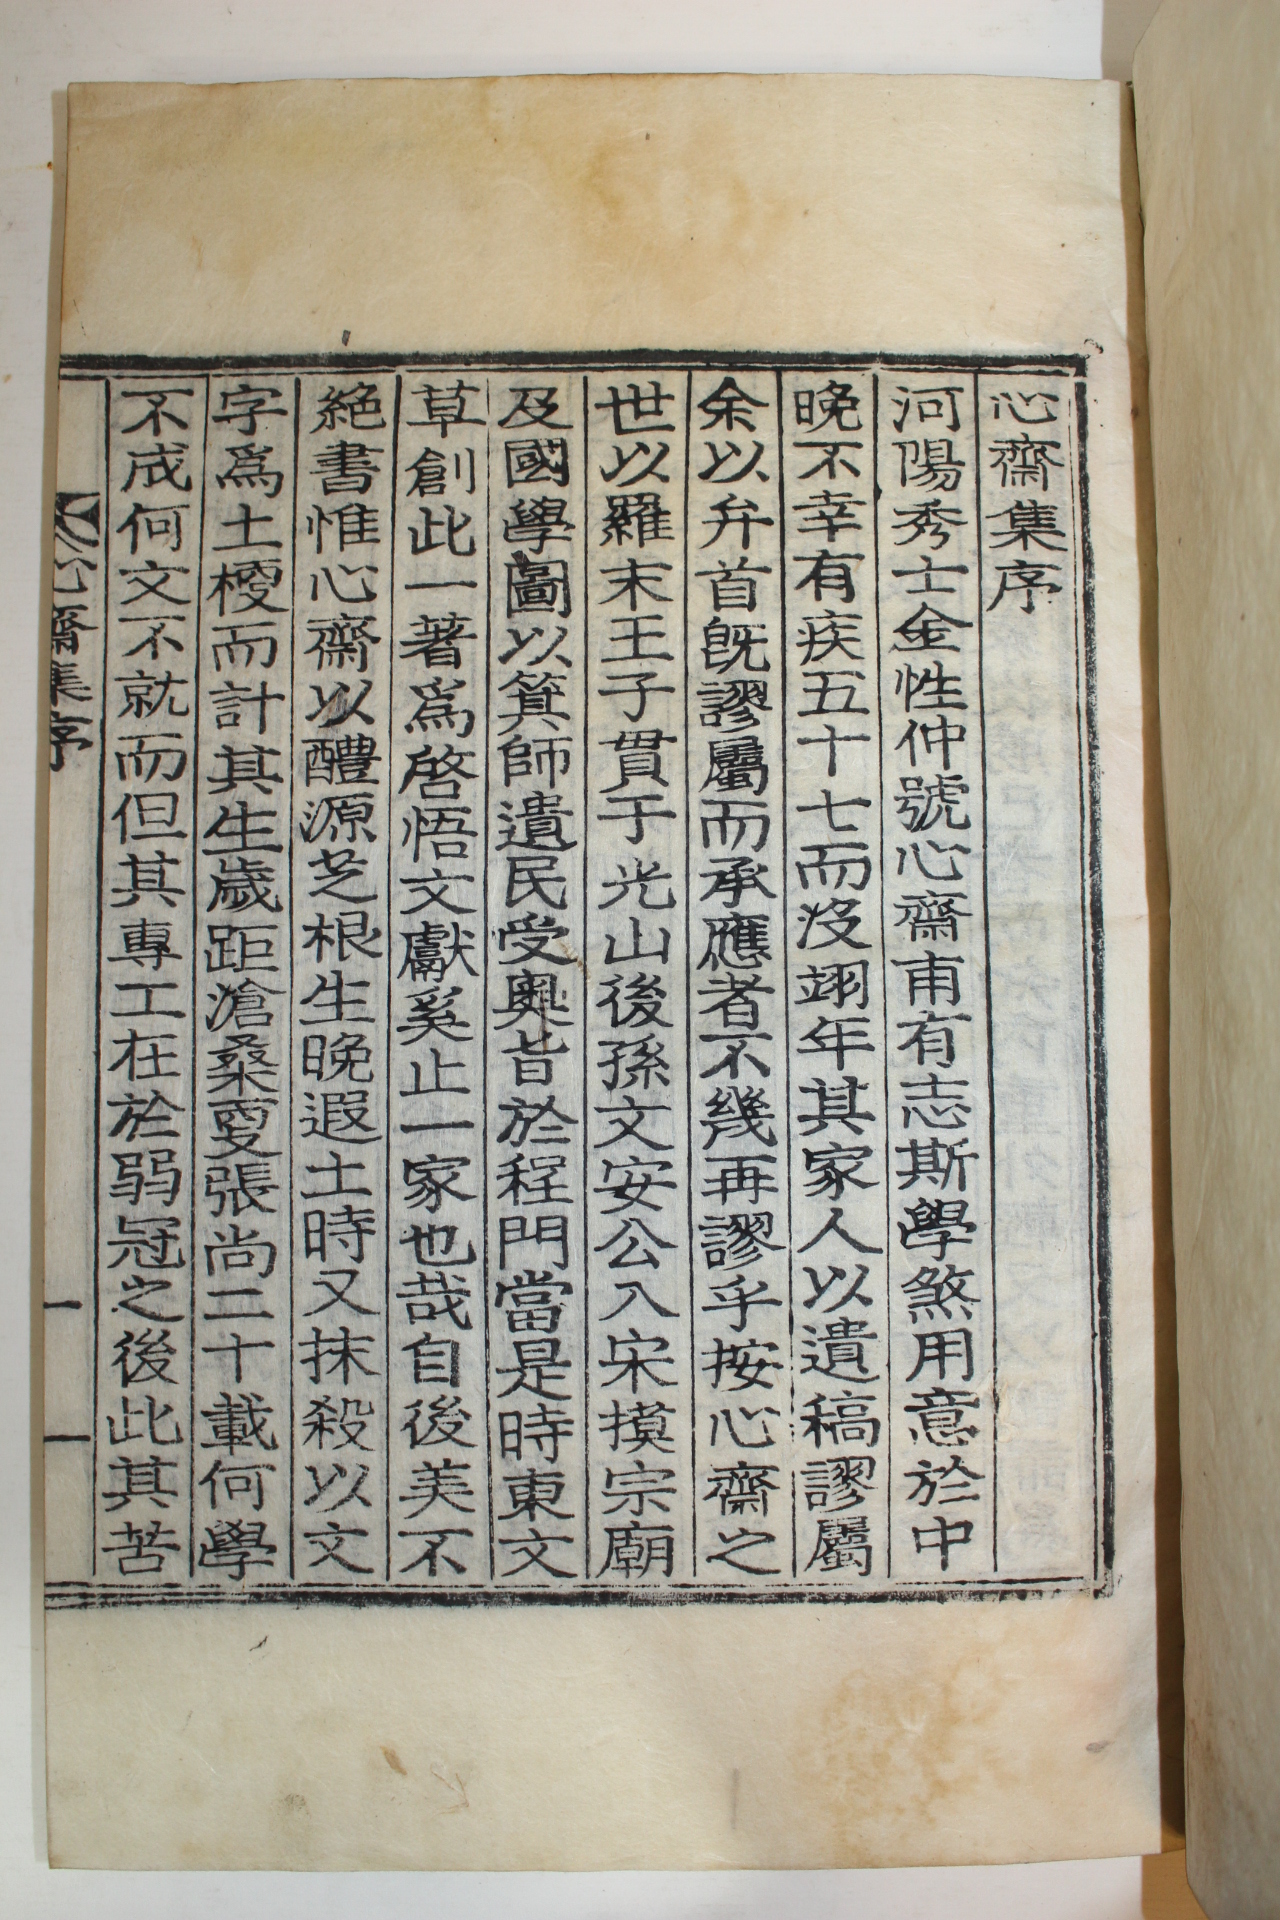 心齋集序
河陽秀士金性仲號心齋甫有志斯學煞用意於中
晚不幸有疾五十七而沒翊年其家人以遺稿謬屬
余以弁首旣謬屬而承應者不幾再謬乎按心齋之
世以羅末王子貫于光山後孫文安公入宋摸宗廟
及國學啚以箕師遺民受奧旨於程門當是時東文
草創此一著爲啓悟文獻奚止一家也哉自後美不
絶書惟心齋以醴源芝根生晚遐土時又抹殺以文
字爲土梗而計其生歲距滄桑変張尚二十載何學
不成何文不就而但其專工在於弱冠之後此其苦
心齋集序 一 一